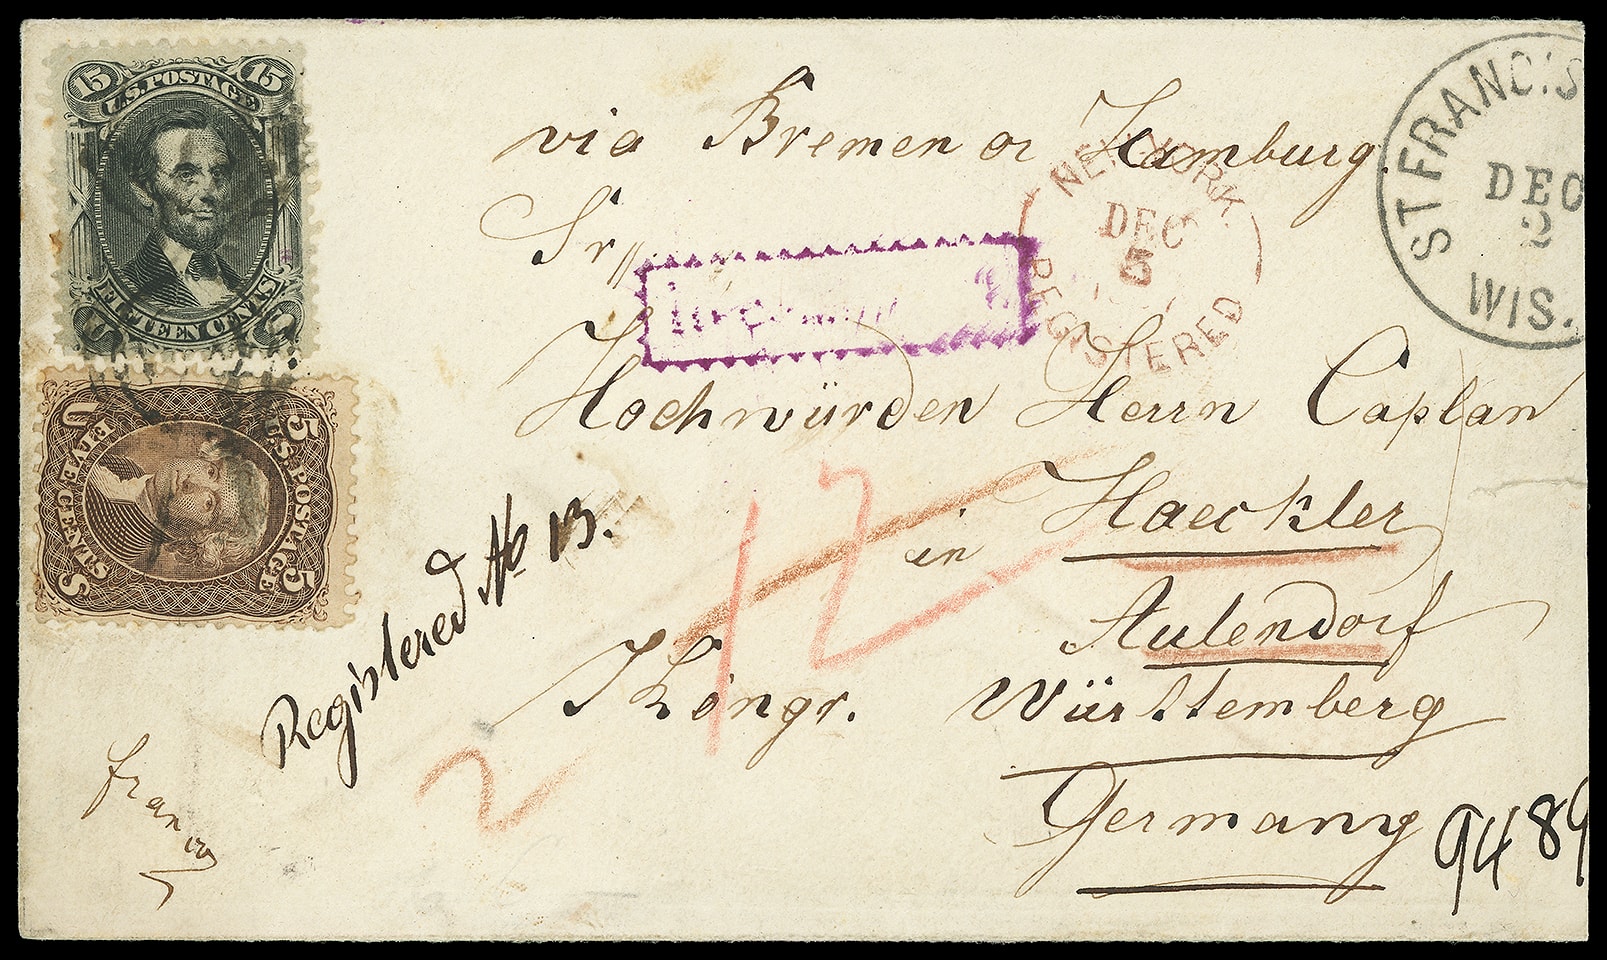 15 U.S. POSTAGE 15
FIFTEEN CENTS
U.S. POSTAGE
5 5
FIVE CENTS
ST FRANCIS
DEC
2
WIS.
via Bremen or Hamburg
NEW YORK
DEC
5
REGISTERED
Sr
Hochwürden Herrn Caplan
Haeckler
in
Aulendorf
Köngr. Württemberg
Germany
Registered No 13.
12
2
franco
9489